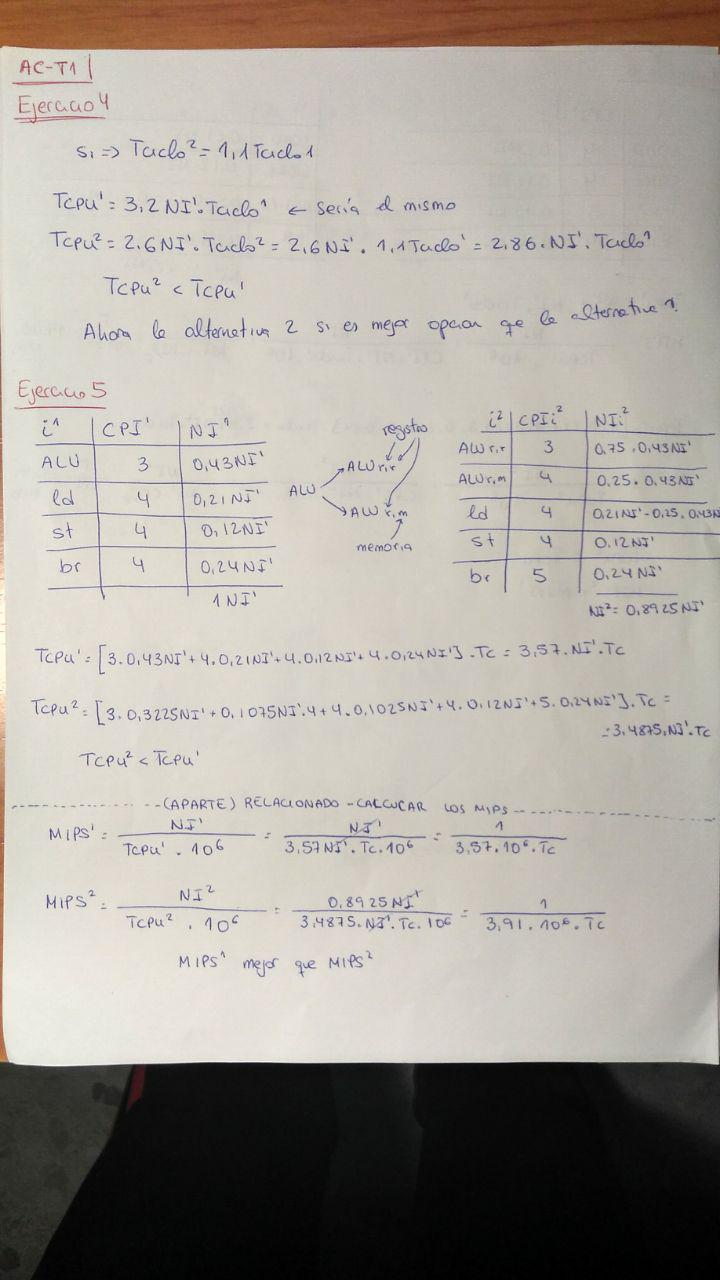 AC-T1
Ejercicio 4
si => Tciclo² = 1,1 Tciclo1
Tcpu¹ = 3,2 NI¹. Tciclo¹ ← sería el mismo
Tcpu² = 2,6 NI¹. Tciclo² = 2,6 NI¹ . 1,1 Tciclo¹ = 2,86. NI¹. Tciclo¹
Tcpu² < Tcpu¹
Ahora la alternativa 2 si es mejor opcion que la alternativa 1.
Ejercicio 5
i¹ CPI¹ NI¹
ALU 3 0,43NI¹
ld 4 0,21NI¹
st 4 0,12NI¹
br 4 0,24NI¹
1NI¹
registro
ALU
ALU r,r
ALU r,m
memoria
i² CPIi² NIi²
ALU r,r 3 0,75 . 0,43NI¹
ALU r,m 4 0,25 . 0,43NI¹
ld 4 0,21NI¹ - 0,25 . 0,43N
st 4 0,12NI¹
br 5 0,24NI¹
NI² = 0,8925NI¹
Tcpu¹ = [3.0,43NI¹ + 4.0,21NI¹ + 4.0,12NI¹ + 4.0,24NI¹] . Tc = 3,57. NI¹. Tc
Tcpu² = [3.0,3225NI¹ + 0,1075NI¹.4 + 4.0,1025NI¹ + 4.0,12NI¹ + 5.0,24NI¹]. Tc =
= 3,4875. NI¹. Tc
Tcpu² < Tcpu¹
(APARTE) RELACIONADO - CALCULAR LOS MIPS
MIPS¹ = NI¹ / Tcpu¹ . 10⁶ = NI¹ / 3,57NI¹. Tc. 10⁶ = 1 / 3,57. 10⁶. Tc
MIPS² = NI² / Tcpu² . 10⁶ = 0,8925NI¹ / 3,4875. NI¹. Tc. 10⁶ = 1 / 3,91. 10⁶. Tc
MIPS¹ mejor que MIPS²